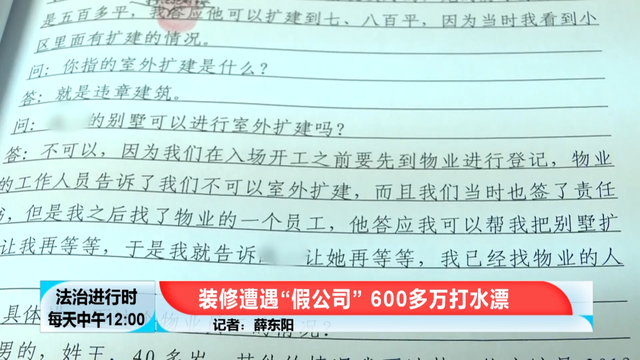 是五百多平，我答应他可以扩建到七、八百平，因为当时我看到小
区里面有扩建的情况。
问：你指的室外扩建是什么？
答：就是违章建筑。
问：的别墅可以进行室外扩建吗？
答：不可以，因为我们在入场开工之前要先到物业进行登记，物业
的工作人员告诉了我们不可以室外扩建，而且我们当时也签了责任
，但是我之后找了物业的一个员工，他答应我可以帮我把别墅扩
让我再等等，于是我就告诉 让她再等等，我已经找物业的人
法治进行时
每天中午12:00
装修遭遇“假公司” 600多万打水漂
记者：薛东阳
具体
男的，姓王，40多岁，